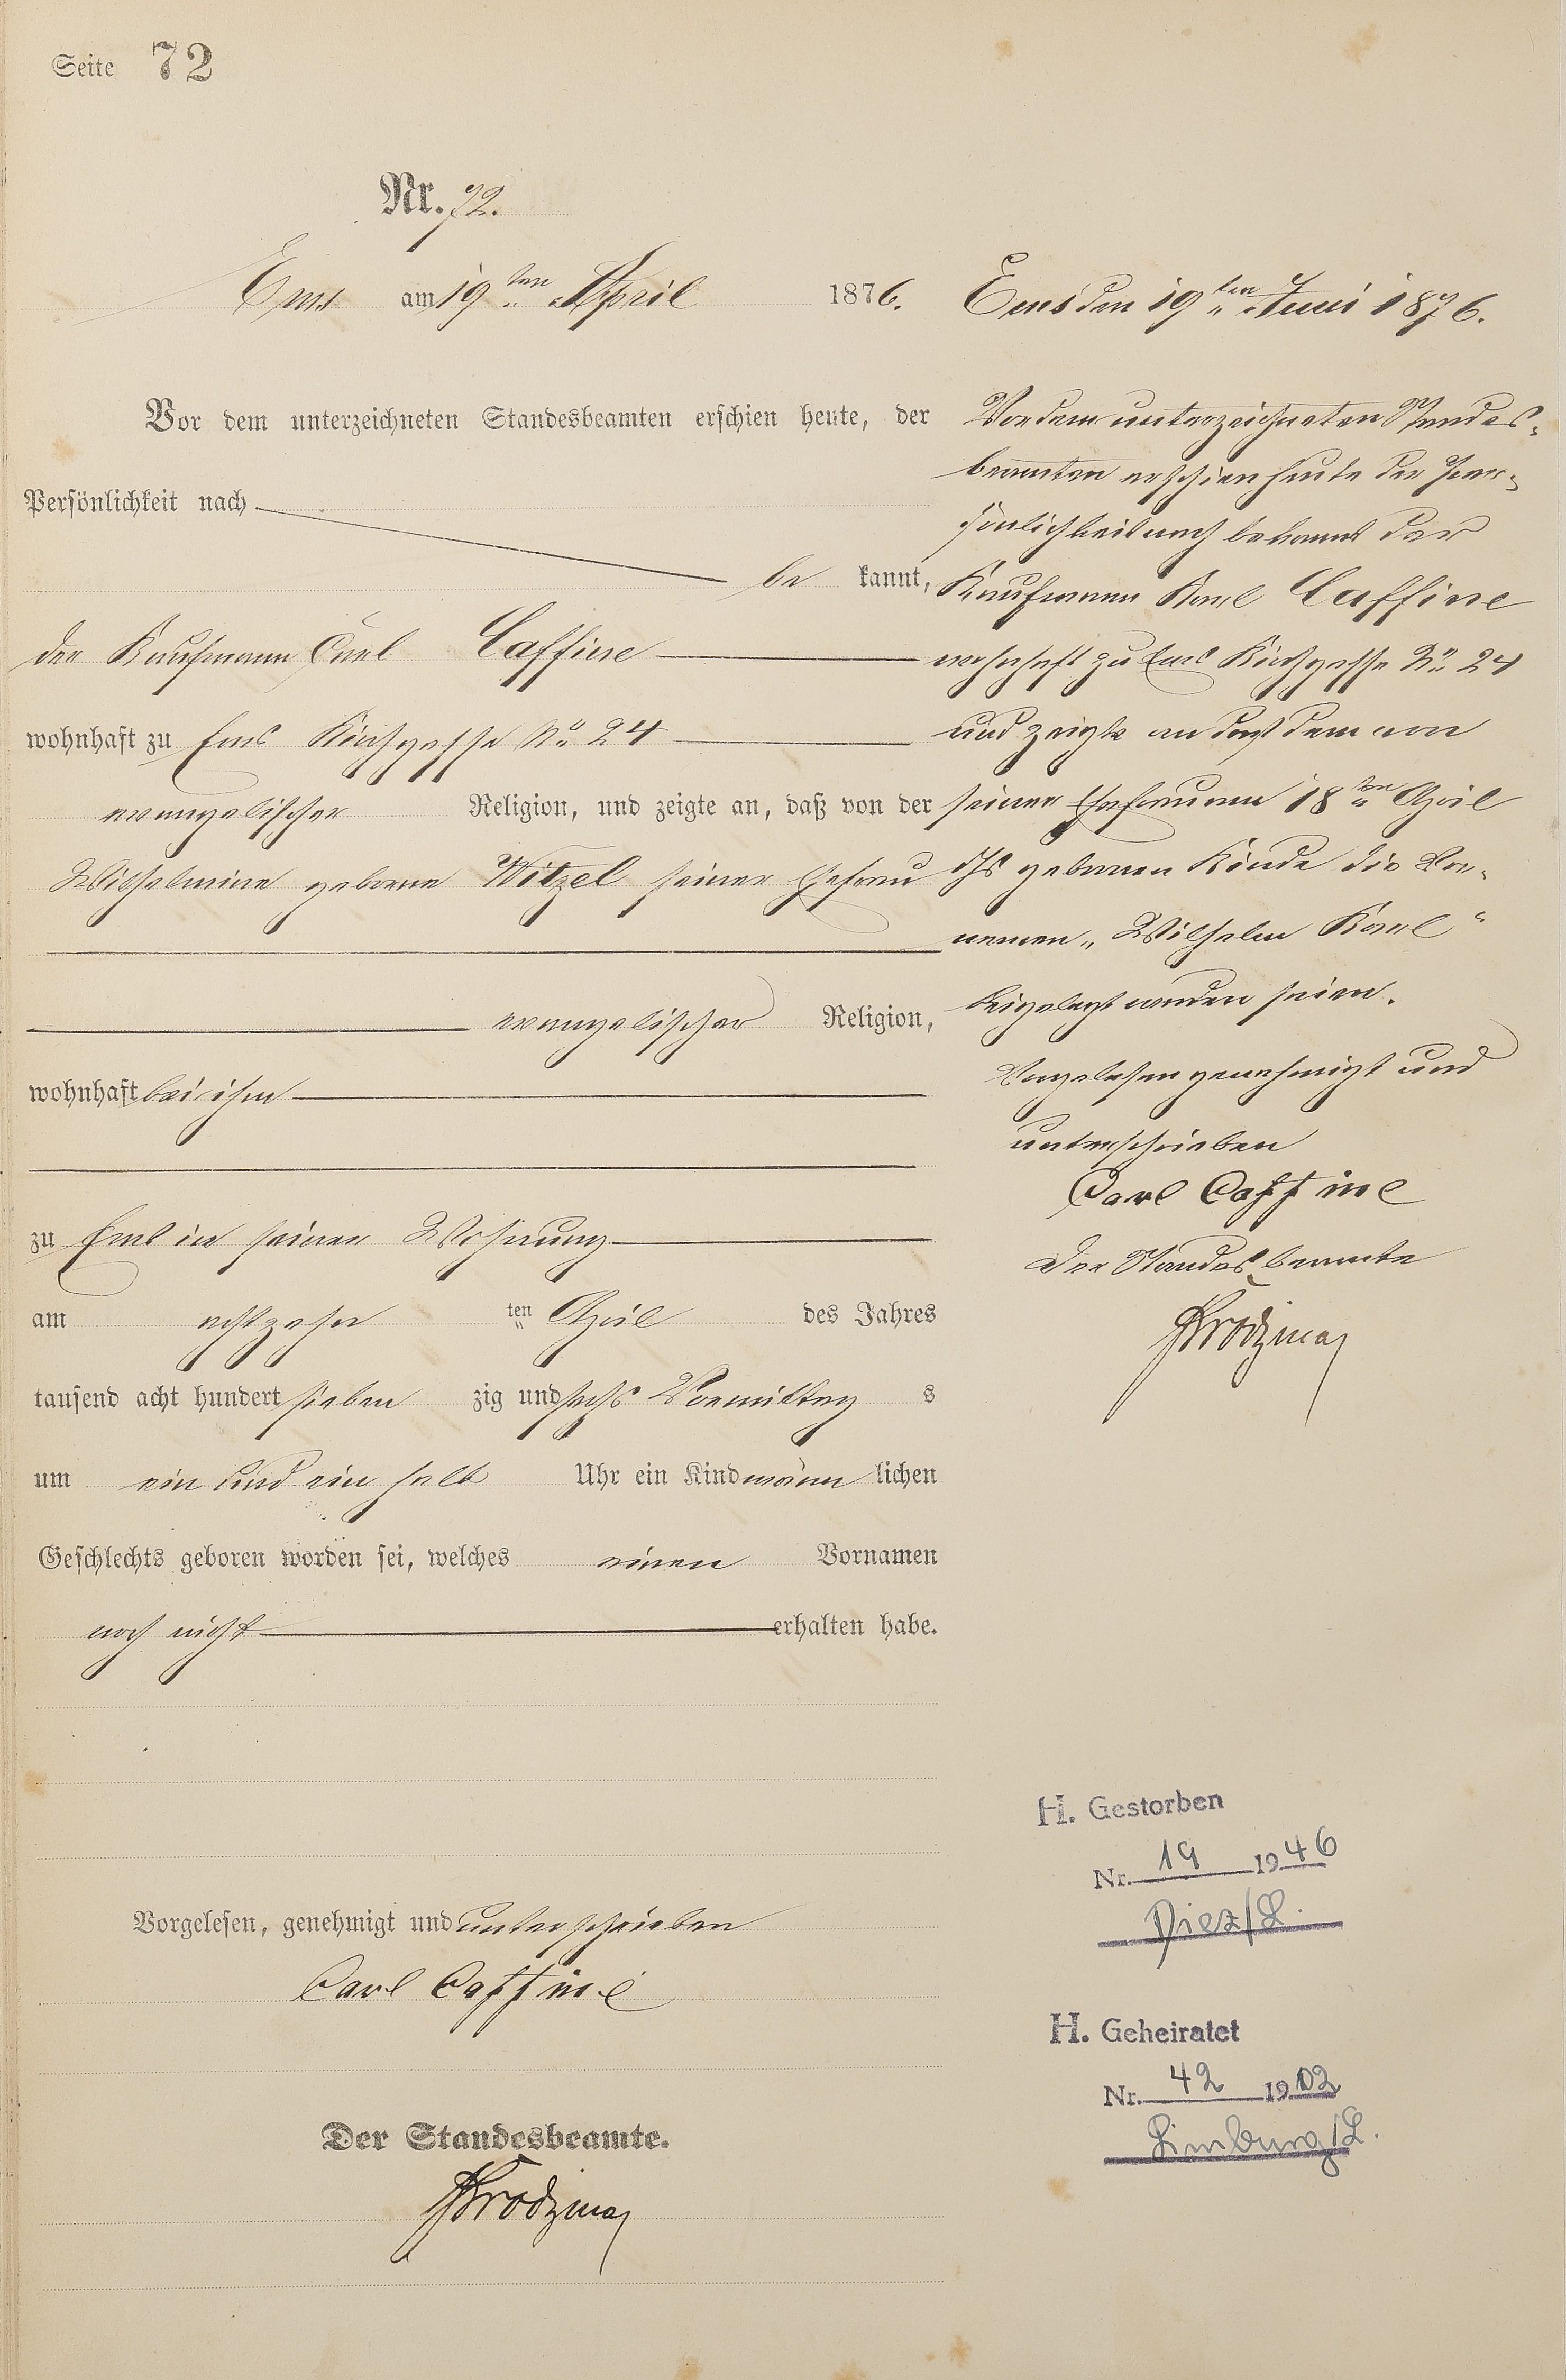 Seite 72
Nr. 72.
Ems am 19ten April 1876.
Vor dem unterzeichneten Standesbeamten erschien heute, der
Persönlichkeit nach
be kannt,
der Kaufmann Carl Caffine
wohnhaft zu Ems Kirchgasse No 24
evangelischer Religion, und zeigte an, daß von der
Wilhelmine geborne Witzel seiner Ehefrau
evangelischer Religion,
wohnhaft bei ihm
zu Ems in seiner Wohnung
am achtzehn ten April des Jahres
tausend acht hundert sieben zig und sechs Vormittag s
um ein und ein halb Uhr ein Kind männ lichen
Geschlechts geboren worden sei, welches einen Vornamen
noch nicht erhalten habe.
Vorgelesen, genehmigt und unterschrieben
Carl Caffiné
Der Standesbeamte.
Ems den 19ten Juni 1876.
Vor dem unterzeichneten Standes-
beamten erschien heute der Per-
sönlichkeit nach bekannt der
Kaufmann Karl Caffine
wohnhaft zu Ems Kirchgasse No 24
und zeigte an daß dem von
seiner Ehefrau am 18ten April
ds Js gebornen Kinde die Vor-
namen „Wilhelm Karl“
beigelegt worden seien.
Vorgelesen genehmigt und
unterschrieben
Carl Caffine
Der Standesbeamte
H. Gestorben
Nr. 19 1946
Diez/L.
H. Geheiratet
Nr. 42 1902
Limburg/L.